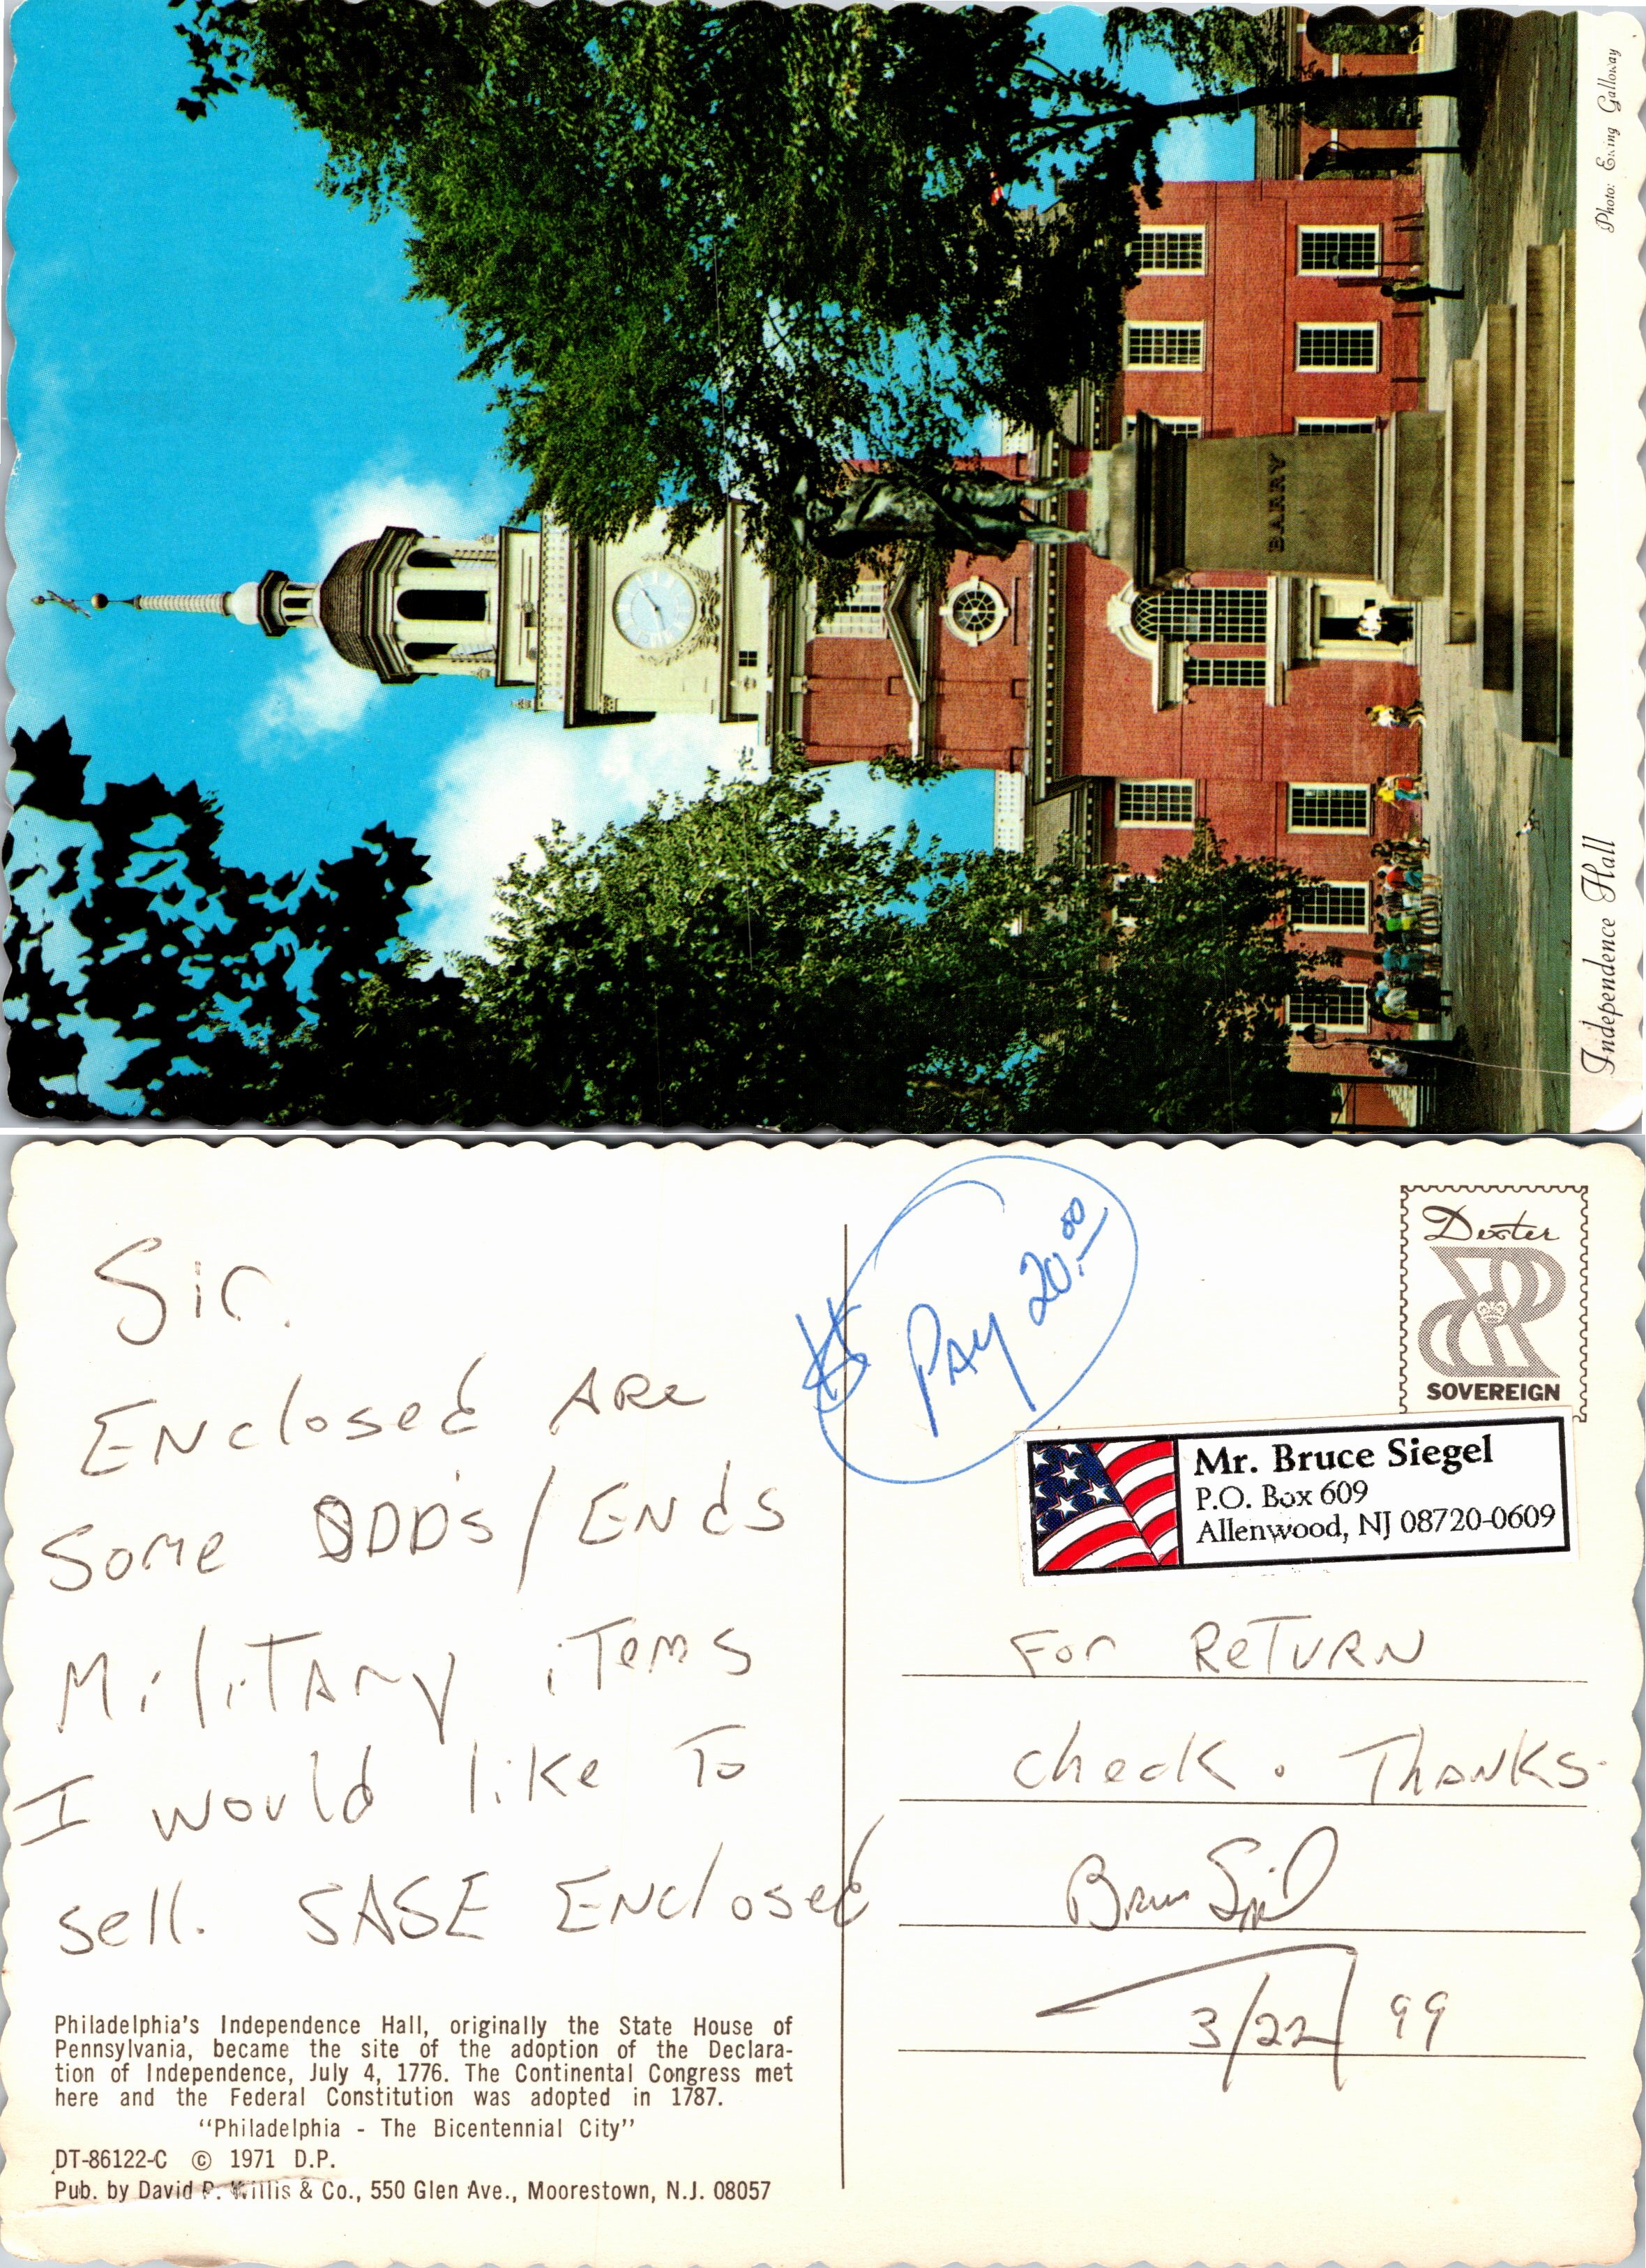 BARRY
Independence Hall
Photo: Ewing Galloway
Sir.
Enclosed ARe
Some ODD's / ENds
MiliTAry iTems
I would like To
sell. SASE ENclosed
PAY 20.00
Dexter
SOVEREIGN
Mr. Bruce Siegel
P.O. Box 609
Allenwood, NJ 08720-0609
For ReTURN
check. THANKS.
3/22/99
Philadelphia's Independence Hall, originally the State House of
Pennsylvania, became the site of the adoption of the Declara-
tion of Independence, July 4, 1776. The Continental Congress met
here and the Federal Constitution was adopted in 1787.
"Philadelphia - The Bicentennial City"
DT-86122-C © 1971 D.P.
Pub. by David P. Willis & Co., 550 Glen Ave., Moorestown, N.J. 08057